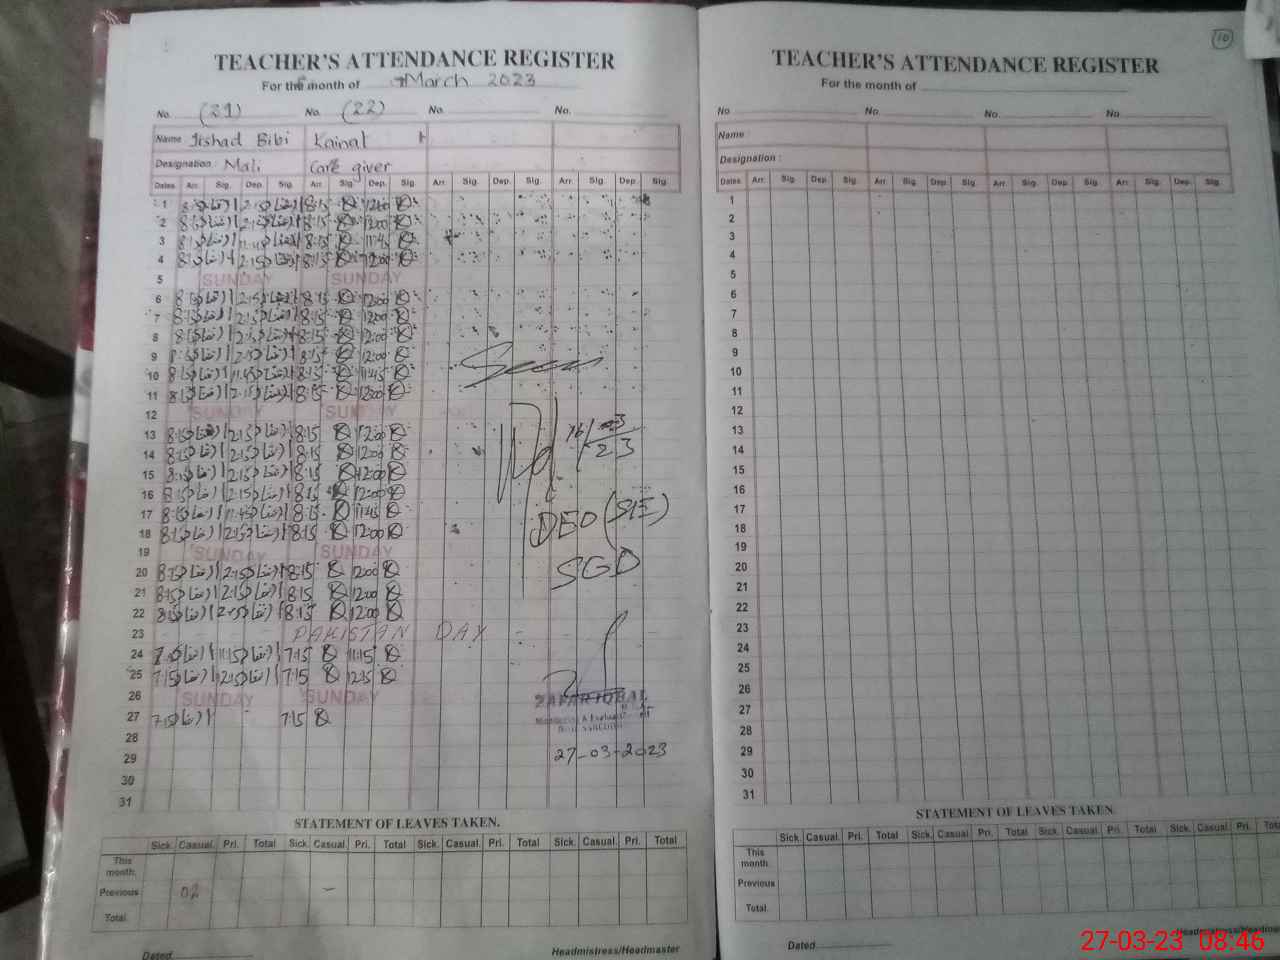 TEACHER'S ATTENDANCE REGISTER
For the month of March 2023
No. (21) No. (22) No. No.
Name Irshad Bibi Kainat
Designation : Mali Care giver
Dates Arr. Sig. Dep. Sig. Arr. Sig. Dep. Sig. Arr. Sig. Dep. Sig. Arr. Sig. Dep. Sig.
1 8:15 12:15 8:15 12:00
2 8:15 12:15 8:15 12:00
3 8:15 11:45 8:15 11:45
4 8:15 12:15 8:15 12:00
5 SUNDAY SUNDAY
6 8:15 12:15 8:15 12:00
7 8:15 12:15 8:15 12:00
8 8:15 12:15 8:15 12:00
9 8:15 12:15 8:15 12:00
10 8:15 11:45 8:15 11:45
11 8:15 12:15 8:15 12:00
12 SUNDAY SUNDAY
13 8:15 12:15 8:15 12:00
14 8:15 12:15 8:15 12:00
15 8:15 12:15 8:15 12:00
16 8:15 12:15 8:15 12:00
17 8:15 11:45 8:15 11:45
18 8:15 12:15 8:15 12:00
19 SUNDAY SUNDAY
20 8:15 12:15 8:15 12:00
21 8:15 12:15 8:15 12:00
22 8:15 12:15 8:15 12:00
23 PAKISTAN DAY
24 7:15 11:15 7:15 11:15
25 7:15 12:15 7:15 12:15
26 SUNDAY SUNDAY
27 7:15 7:15
28
29
30
31
16/3/23
DEO (SE)
SGD
ZAFAR IQBAL
27-03-2023
STATEMENT OF LEAVES TAKEN.
Sick. Casual. Pri. Total Sick. Casual. Pri. Total Sick. Casual. Pri. Total Sick. Casual. Pri. Total
This month.
Previous 02 –
Total.
Dated Headmistress/Headmaster
10
TEACHER'S ATTENDANCE REGISTER
For the month of
No. No. No. No.
Name :
Designation :
Dates Arr. Sig. Dep. Sig. Arr. Sig. Dep. Sig. Arr. Sig. Dep. Sig. Arr. Sig. Dep. Sig.
1
2
3
4
5
6
7
8
9
10
11
12
13
14
15
16
17
18
19
20
21
22
23
24
25
26
27
28
29
30
31
STATEMENT OF LEAVES TAKEN.
Sick. Casual. Pri. Total Sick. Casual. Pri. Total Sick. Casual. Pri. Total Sick. Casual. Pri.
This month.
Previous
Total.
Dated
27-03-23 08:46